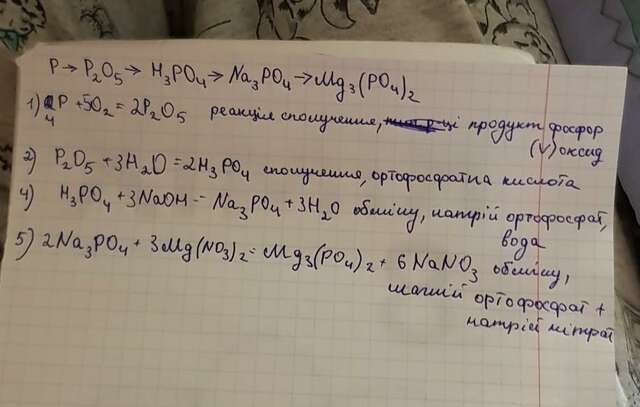 P → P₂O₅ → H₃PO₄ → Na₃PO₄ → Mg₃(PO₄)₂
1) 4P + 5O₂ = 2P₂O₅ реакція сполучення, продукт фосфор
(V) оксид
2) P₂O₅ + 3H₂O = 2H₃PO₄ сполучення, ортофосфатна кислота
4) H₃PO₄ + 3NaOH = Na₃PO₄ + 3H₂O обміну, натрій ортофосфат,
вода
5) 2Na₃PO₄ + 3Mg(NO₃)₂ = Mg₃(PO₄)₂ + 6NaNO₃ обміну,
магній ортофосфат +
натрій нітрат